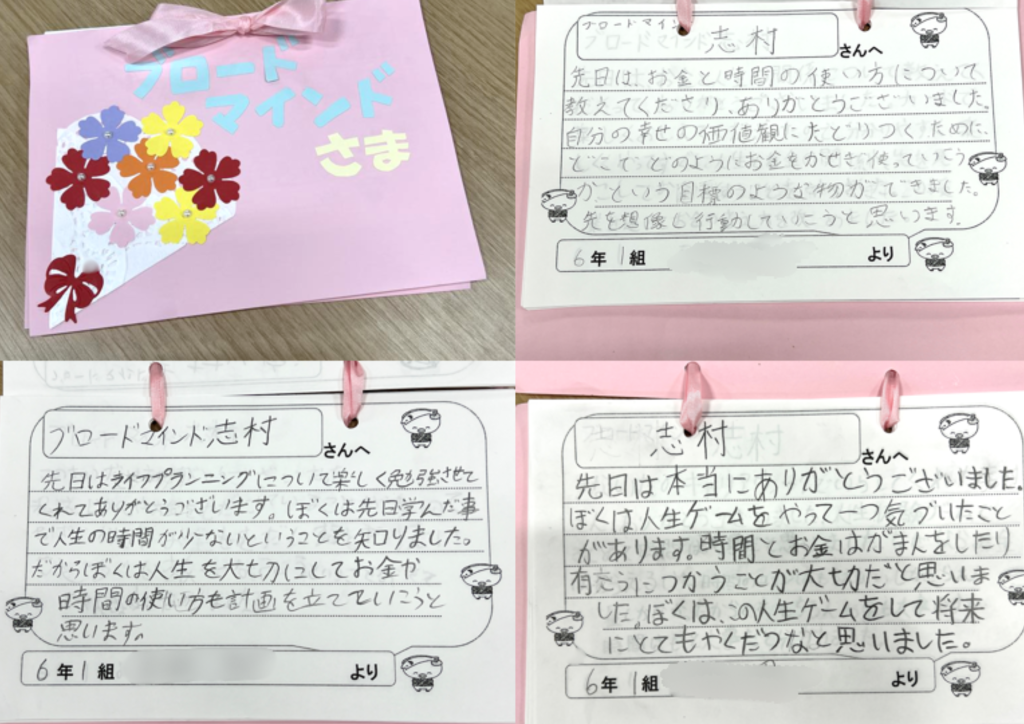 ブロード
マインド
さま
ブロードマインド志村
さんへ
先日は、お金と時間の使い方について
教えてくださり、ありがとうございました。
自分の幸せの価値観にたどりつくために、
どこで、どのようにお金をかせぎ、使っていこう
か という目標のような物ができました。
先を想像し行動していこうと思います。
6年1組
より
ブロードマインド志村
さんへ
先日はライフプランニングについて楽しく勉強させて
くれてありがとうございます。ぼくは先日学んだ事
で人生の時間が少ないということを知りました。
だからぼくは人生を大切にしてお金や
時間の使い方も計画を立てていこうと
思います。
6年1組
より
志村
さんへ
先日は本当にありがとうございました。
ぼくは人生ゲームをやって一つ気づいたこと
があります。時間とお金はがまんをしたり
有効につかうことが大切だと思いま
した。ぼくは、この人生ゲームをして将来
にとてもやくだつなと思いました。
6年1組
より